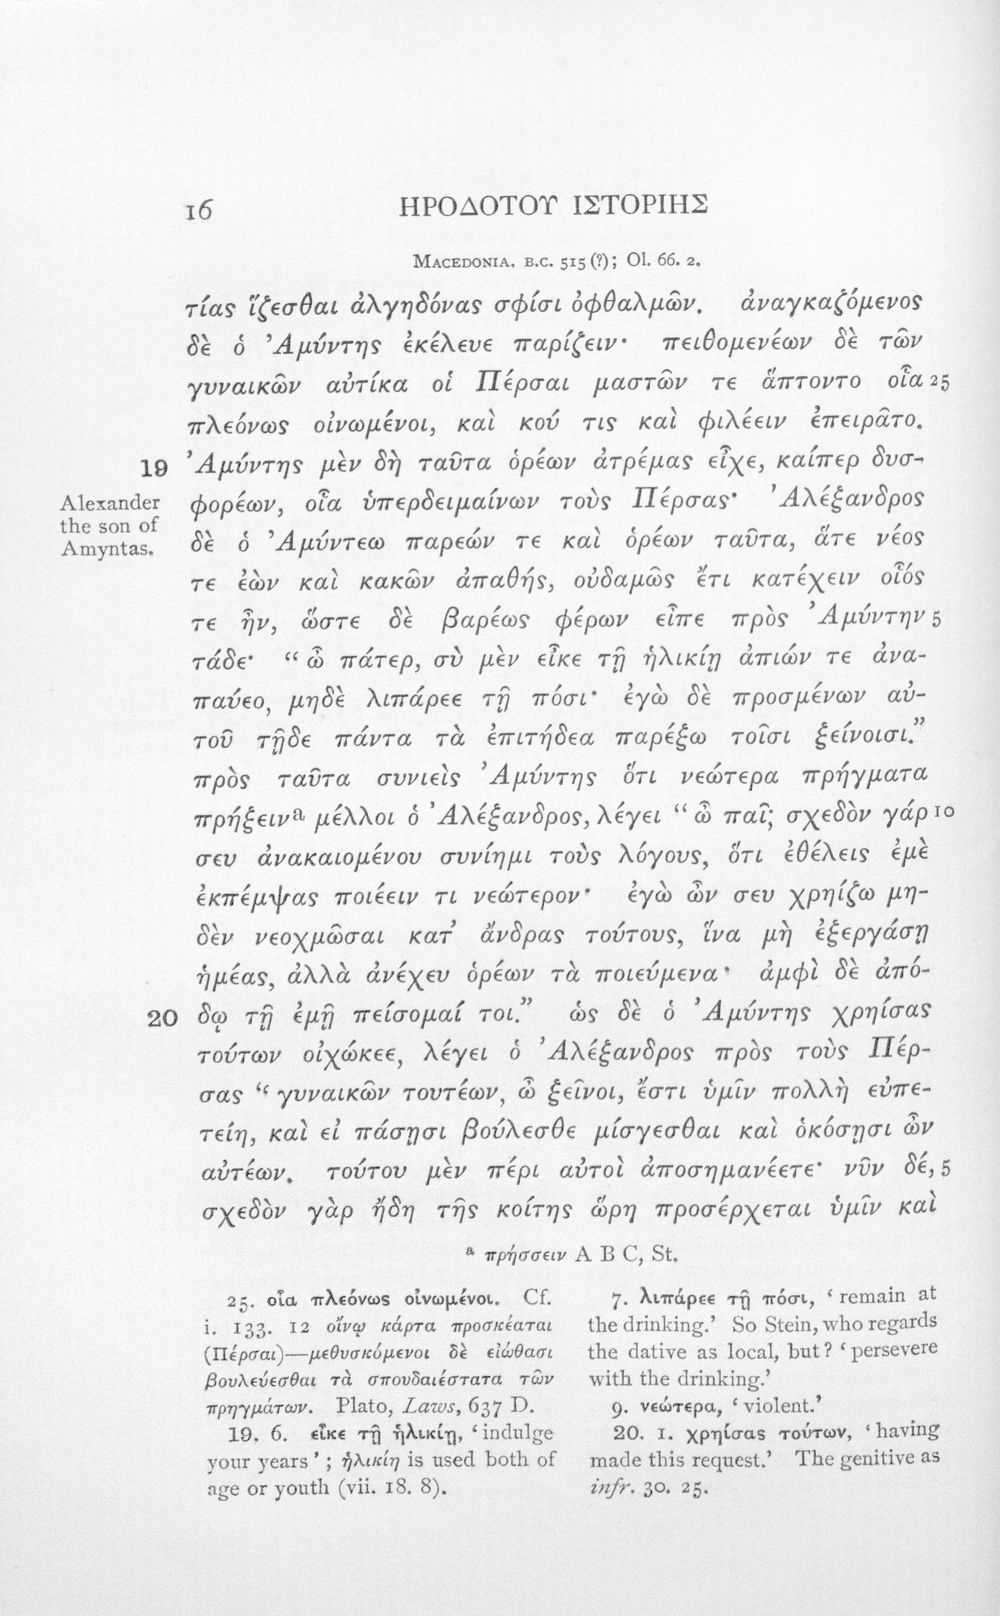 16 ΗΡΟΔΟΤΟΥ ΙΣΤΟΡΙΗΣ
MACEDONIA. B.C. 515 (?); Ol. 66. 2.
τίας ἵζεσθαι ἀλγηδόνας σφίσι ὀφθαλμῶν. ἀναγκαζόμενος
δὲ ὁ Ἀμύντης ἐκέλευε παρίζειν· πειθομενέων δὲ τῶν
γυναικῶν αὐτίκα οἱ Πέρσαι μαστῶν τε ἅπτοντο οἷα 25
πλεόνως οἰνωμένοι, καὶ κού τις καὶ φιλέειν ἐπειρᾶτο.
19 Ἀμύντης μὲν δὴ ταῦτα ὁρέων ἀτρέμας εἶχε, καίπερ δυσ-
Alexander the son of Amyntas.
φορέων, οἷα ὑπερδειμαίνων τοὺς Πέρσας· Ἀλέξανδρος
δὲ ὁ Ἀμύντεω παρεών τε καὶ ὁρέων ταῦτα, ἅτε νέος
τε ἐὼν καὶ κακῶν ἀπαθής, οὐδαμῶς ἔτι κατέχειν οἷός
τε ἦν, ὥστε δὲ βαρέως φέρων εἶπε πρὸς Ἀμύντην 5
τάδε· “ὦ πάτερ, σὺ μὲν εἶκε τῇ ἡλικίῃ ἀπιών τε ἀνα-
παύεο, μηδὲ λιπάρεε τῇ πόσι· ἐγὼ δὲ προσμένων αὐ-
τοῦ τῇδε πάντα τὰ ἐπιτήδεα παρέξω τοῖσι ξείνοισι.”
πρὸς ταῦτα συνιεὶς Ἀμύντης ὅτι νεώτερα πρήγματα
πρήξειν<sup>a</sup> μέλλοι ὁ Ἀλέξανδρος, λέγει “ὦ παῖ; σχεδὸν γάρ 10
σευ ἀνακαιομένου συνίημι τοὺς λόγους, ὅτι ἐθέλεις ἐμὲ
ἐκπέμψας ποιέειν τι νεώτερον· ἐγὼ ὦν σευ χρηίζω μη-
δὲν νεοχμῶσαι κατ’ ἄνδρας τούτους, ἵνα μὴ ἐξεργάσῃ
ἡμέας, ἀλλὰ ἀνέχευ ὁρέων τὰ ποιεύμενα· ἀμφὶ δὲ ἀπό-
20 δῳ τῇ ἐμῇ πείσομαί τοι.” ὡς δὲ ὁ Ἀμύντης χρηίσας
τούτων οἰχώκεε, λέγει ὁ Ἀλέξανδρος πρὸς τοὺς Πέρ-
σας “γυναικῶν τουτέων, ὦ ξεῖνοι, ἔστι ὑμῖν πολλὴ εὐπε-
τείη, καὶ εἰ πάσῃσι βούλεσθε μίσγεσθαι καὶ ὁκόσῃσι ὦν
αὐτέων. τούτου μὲν πέρι αὐτοὶ ἀποσημανέετε· νῦν δέ, 5
σχεδὸν γὰρ ἤδη τῆς κοίτης ὥρη προσέρχεται ὑμῖν καὶ
<sup>a</sup> πρήσσειν A B C, St.
25. οἷα πλεόνως οἰνωμένοι. Cf.
i. 133. 12 οἴνῳ κάρτα προσκέαται
(Πέρσαι)—μεθυσκόμενοι δὲ εἰώθασι
βουλεύεσθαι τὰ σπουδαιέστατα τῶν
πρηγμάτων. Plato, Laws, 637 D.
19. 6. εἶκε τῇ ἡλικίῃ, ‘indulge
your years’; ἡλικίη is used both of
age or youth (vii. 18. 8).
7. λιπάρεε τῇ πόσι, ‘remain at
the drinking.’ So Stein, who regards
the dative as local, but? ‘persevere
with the drinking.’
9. νεώτερα, ‘violent.’
20. 1. χρηίσας τούτων, ‘having
made this request.’ The genitive as
infr. 30. 25.